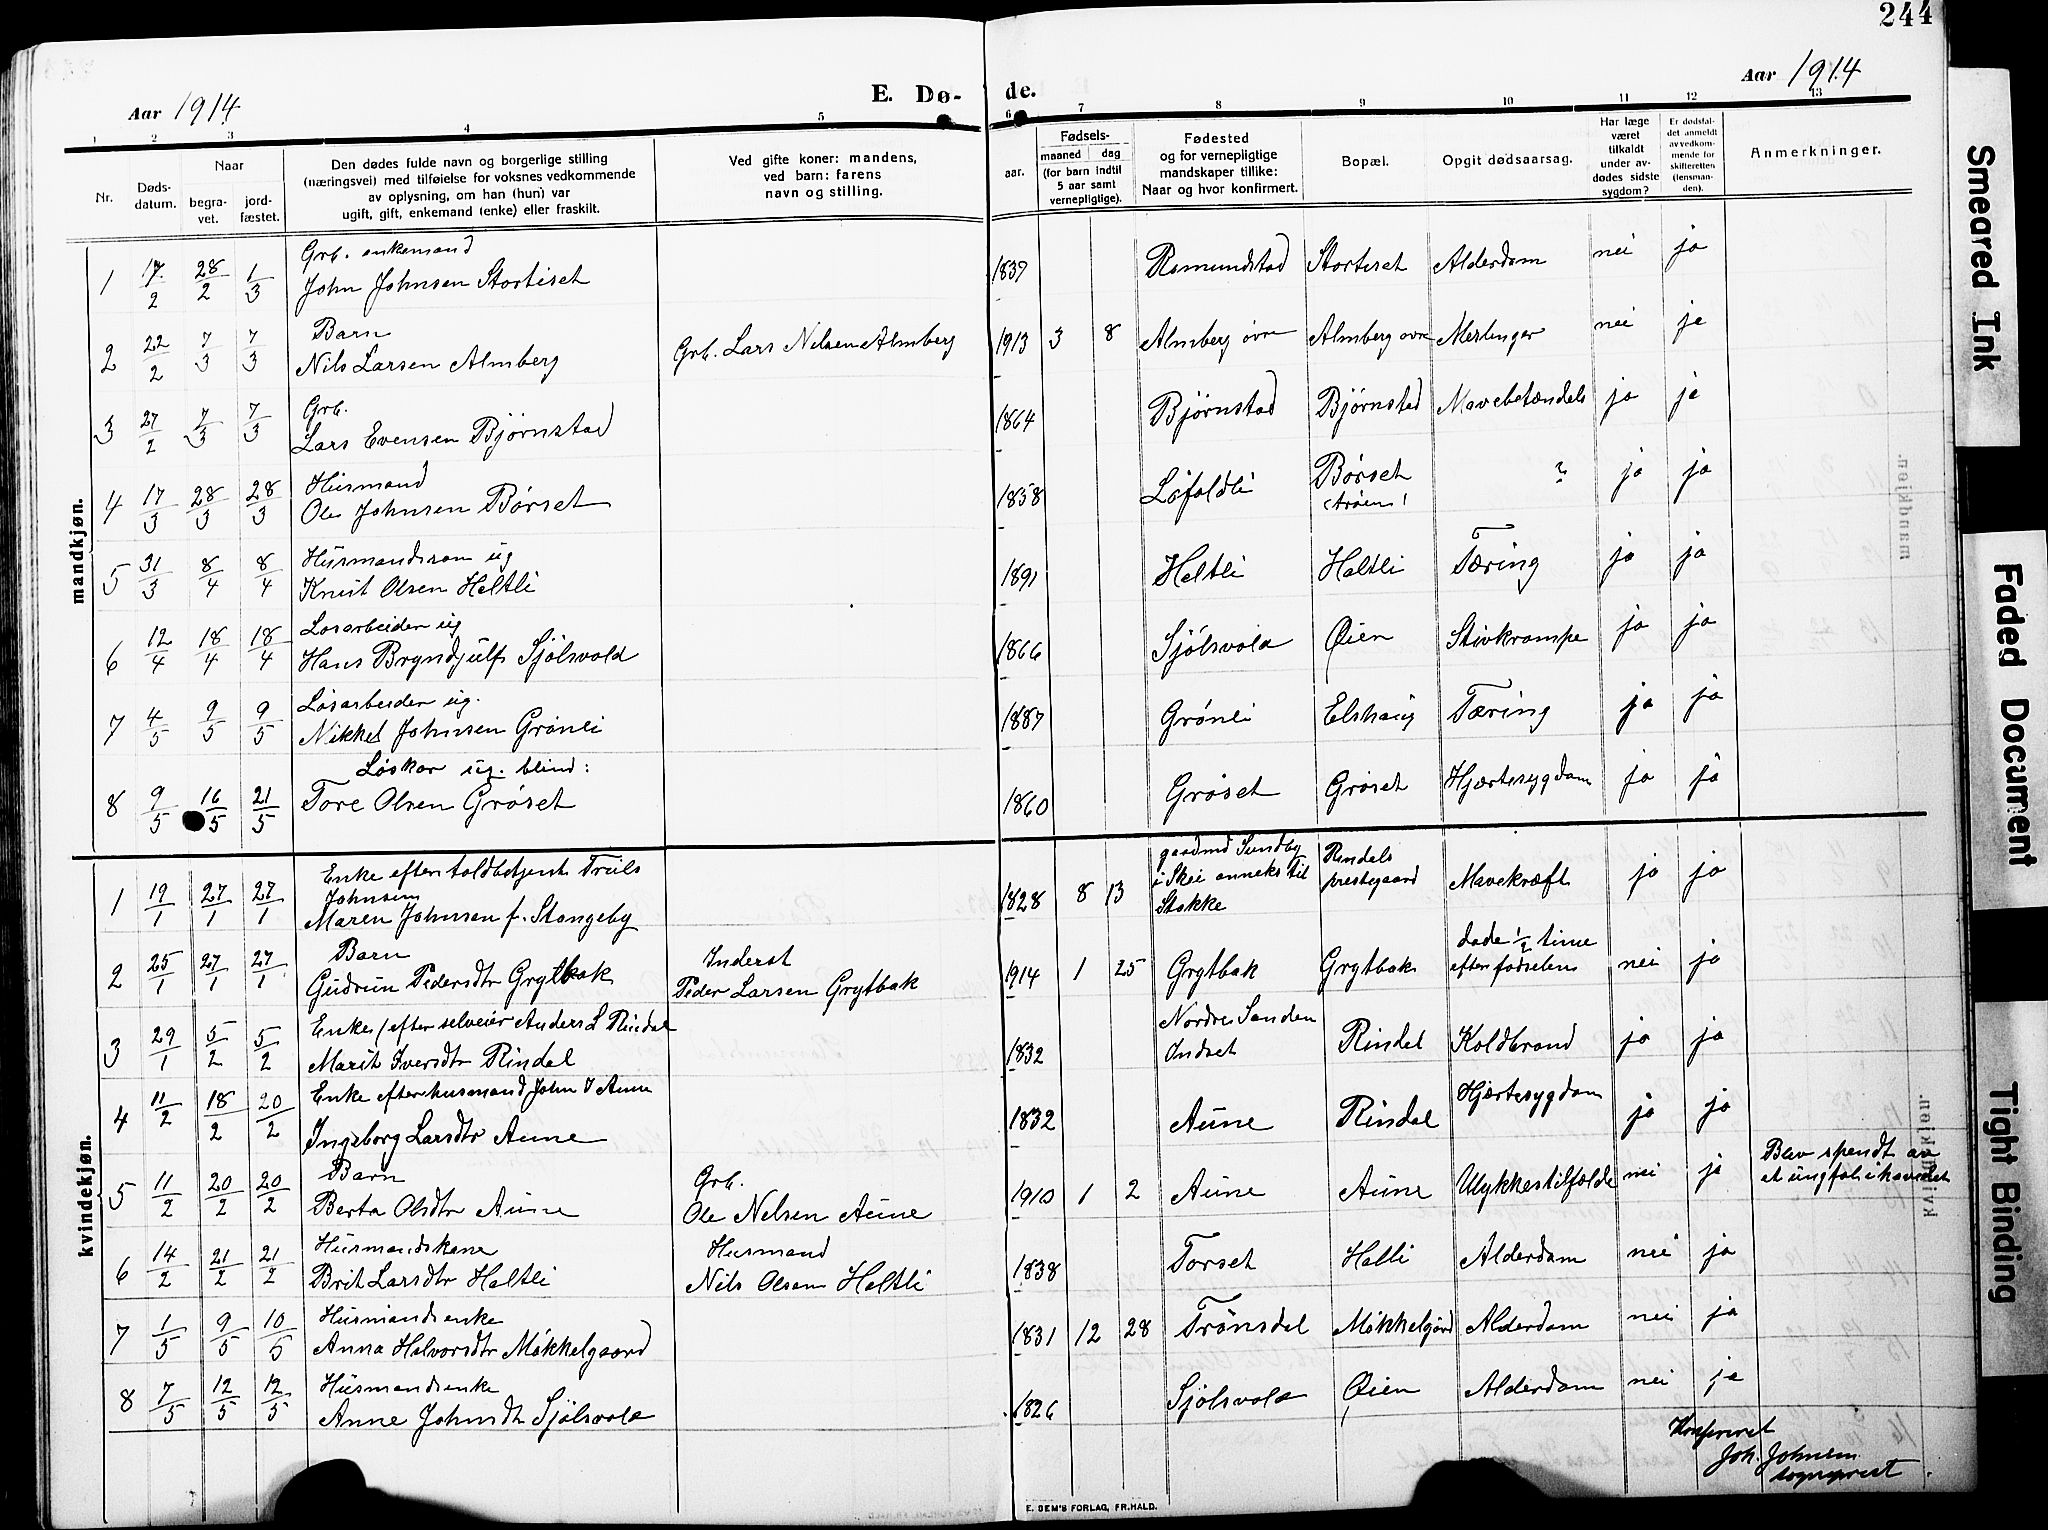 244
Aar 1914
E. Dø-
de.
Aar 1914
1 2 3 4 5 6 7 8 9 10 11 12 13
Nr.
Døds-
datum.
Naar
begra-
vet.
jord-
fæstet.
Den dødes fulde navn og borgerlige stilling
(næringsvei) med tilføielse for voksnes vedkommende
av oplysning, om han (hun) var
ugift, gift, enkemand (enke) eller fraskilt.
Ved gifte koner: mandens,
ved barn: farens
navn og stilling.
Fødsels-
aar.
maaned dag
(for barn indtil
5 aar samt
vernepligtige).
Fødested
og for vernepligtige
mandskaper tillike:
Naar og hvor konfirmert.
Bopæl.
Opgit dødsaarsag.
Har læge
været
tilkaldt
under av-
dødes sidste
sygdom?
Er dødsfal-
det anmeldt
av vedkom-
mende for
skifteretten
(lensman-
den).
Anmerkninger.
mandkjøn.
Grb. enkemand
1 17/2 28/2 1/3 John Johnsen Stortiset 1839 Romundstad Stortiset Alderdom nei ja
Barn
2 22/2 7/3 7/3 Nils Larsen Almberg Grb. Lars Nilsen Almberg 1913 3 8 Almberg øvre Almberg øvre Meslinger nei ja
Grb.
3 27/2 7/3 7/3 Lars Evensen Bjørnstad 1864 Bjørnstad Bjørnstad Mavebetændels ja ja
Husmand
4 17/3 28/3 28/3 Ole Johnsen Børset 1858 Løfaldli Børset ? ja ja
(trøen)
Husmandssøn ug
5 31/3 8/4 8/4 Knut Olsen Holtli 1891 Holtli Holtli Tæring ja ja
Løsarbeider ug
6 12/4 18/4 18/4 Hans Bryndjulfs Sjølsvold 1866 Sjølsvold Øien Stivkrampe ja ja
Løsarbeider ug.
7 4/5 9/5 9/5 Nikkel Johnsen Grønli 1887 Grønli Elshaug Tæring ja ja
Løskar ug. blind:
8 9/5 16/5 21/5 Tore Olsen Grøset 1860 Grøset Grøset Hjertesygdom ja ja
kvindekjøn.
Enke efter toldbetjent Truls
Johnsen
1 19/1 27/1 27/1 Maren Johnsen f. Stangeby 1828 8 13 gaarden Sundby
i Skei anneks til
Stokke
Rindals
prestegaard
Mavekræft ja ja
Barn
2 25/1 27/1 27/1 Gudrun Pedersdtr Grytbak Inderst
Peder Larsen Grytbak 1914 1 25 Grytbak Grytbak døde 1/2 time
efter fødselen nei ja
Enke (efter selveier Anders L Rindal
3 29/1 5/2 5/2 Marit Iversdtr Rindal 1832 Nordre Sanden
Indset Rindal Koldbrand ja ja
Enke efter husmand John I Aune
4 11/2 18/2 20/2 Ingeborg Larsdtr Aune 1832 Aune Rindal Hjertesygdom ja ja
Barn
5 11/2 20/2 20/2 Berta Olsdtr Aune Grb.
Ole Nilsen Aune 1910 1 2 Aune Aune Ulykkestilfælde nei ja Blev spendt av
et ungføl i hovedet
Husmandskone
6 14/2 21/2 21/2 Brit Larsdtr Holtli Husmand
Nils Olsen Holtli 1838 Torset Holtli Alderdom nei ja
Husmandsenke
7 1/5 9/5 10/5 Anna Halvorsdtr Mokkelgaard 1831 12 28 Trønsdal Mokkelgård Alderdom nei ja
Husmandsenke
8 7/5 12/5 12/5 Anne Johnsdtr Sjølsvold 1826 Sjølsvold Øien Alderdom nei ja
Konfereret
Joh. Johnsen
sogneprest
E. SEM'S FORLAG, FR.HALD.
Smeared Ink
Faded Document
Tight Binding